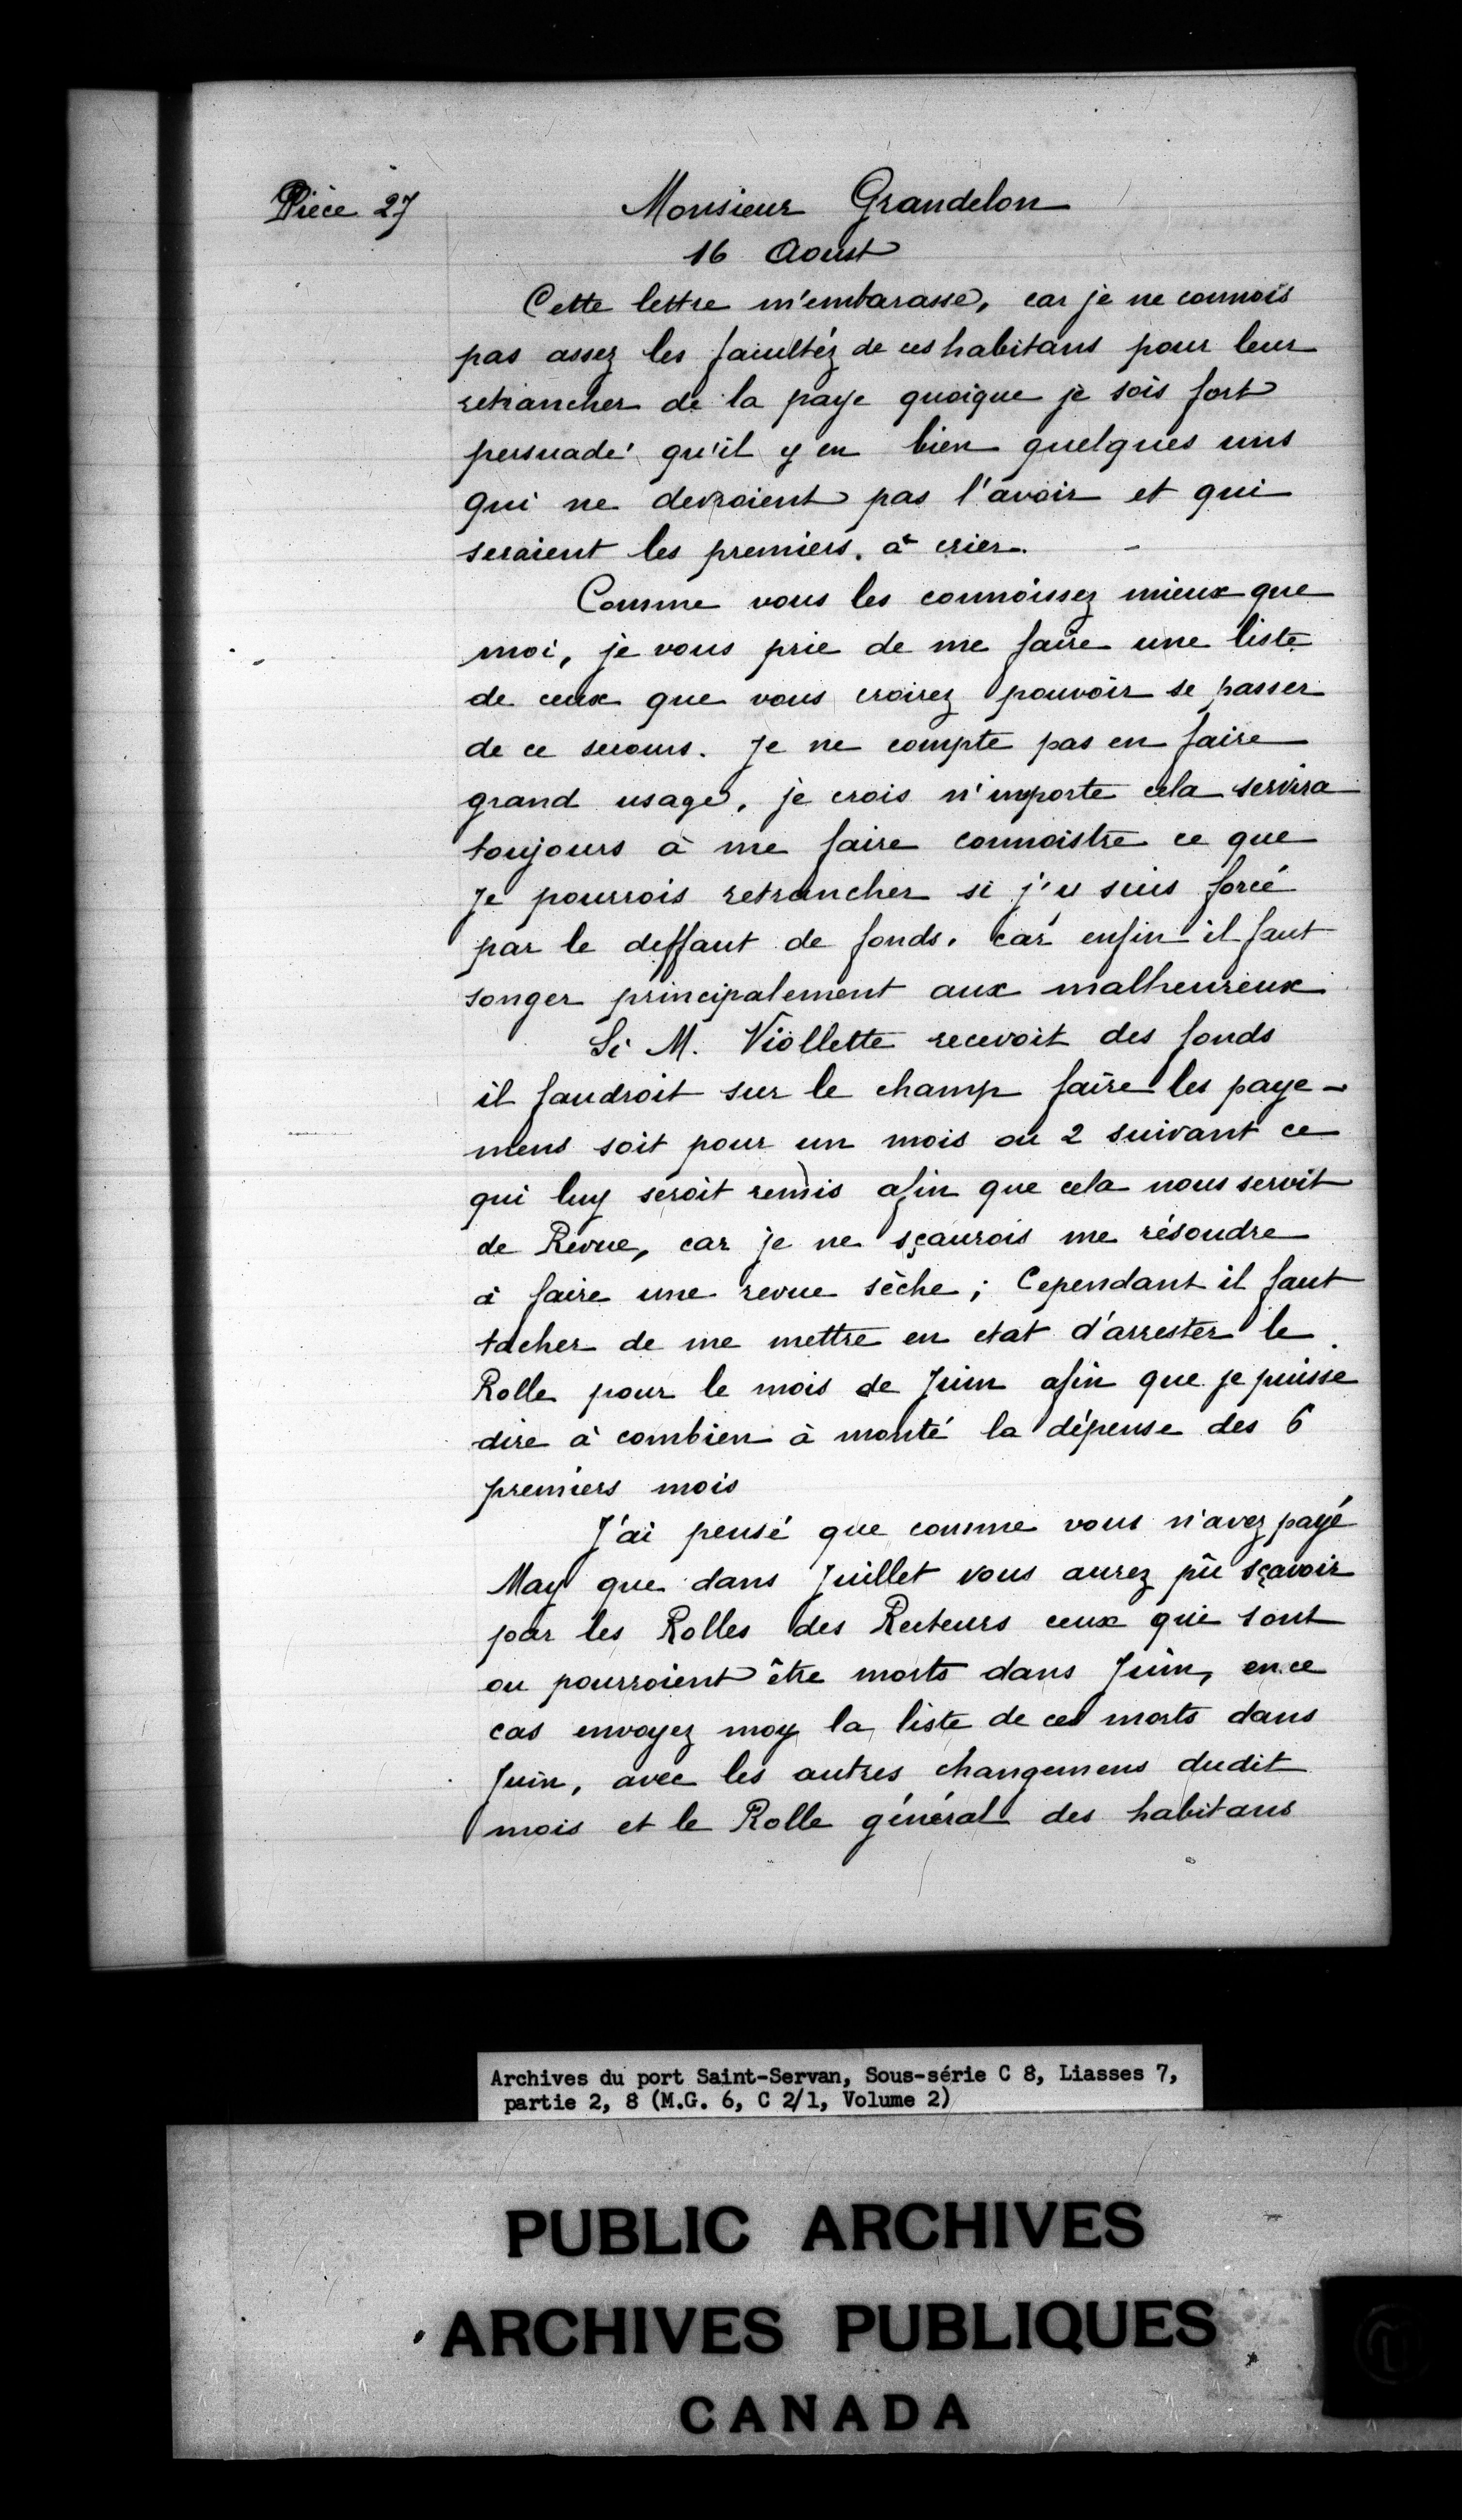 Pièce 27
Monsieur Grandelon
16 Aoust
Cette lettre m'embarasse, car je ne connois
pas assez les facultéz de ces habitans pour leur
retrancher de la paye quoique je sois fort
persuadé qu'il y en bien quelques uns
qui ne devroient pas l'avoir et qui
seraient les premiers. à crier. -
Comme vous les connoissez mieux que
moi, je vous prie de me faire une liste
de ceux que vous croirez pouvoir se passer
de ce secours. Je ne compte pas en faire
grand usage, je crois n'importe cela servira
toujours à me faire connoistre ce que
Je pourrois retrancher si j'y suis forcé
par le deffaut de fonds. car enfin il faut
songer principalement aux malheureux
Si M. Viollette recevoit des fonds
il faudroit sur le champ faire les paye-
mens soit pour un mois ou 2 suivant ce
qui luy seroit remis afin que cela nous servit
de Revue, car je ne sçaurois me résoudre
à faire une revue sèche ; Cependant il faut
tacher de me mettre en etat d'arrester le
Rolle pour le mois de Juin afin que je puisse
dire à combien à monté la dépense des 6
premiers mois
J'ai pensé que comme vous n'avez payé
May que dans Juillet vous aurez pû sçavoir
par les Rolles des Recteurs ceux qui sont
ou pourroient être morts dans Juin, en ce
cas envoyez moy la liste de ces morts dans
Juin, avec les autres changemens dudit
mois et le Rolle général des habitans
Archives du port Saint-Servan, Sous-série C 8, Liasses 7,
partie 2, 8 (M.G. 6, C 2/1, Volume 2)
PUBLIC ARCHIVES
ARCHIVES PUBLIQUES
CANADA